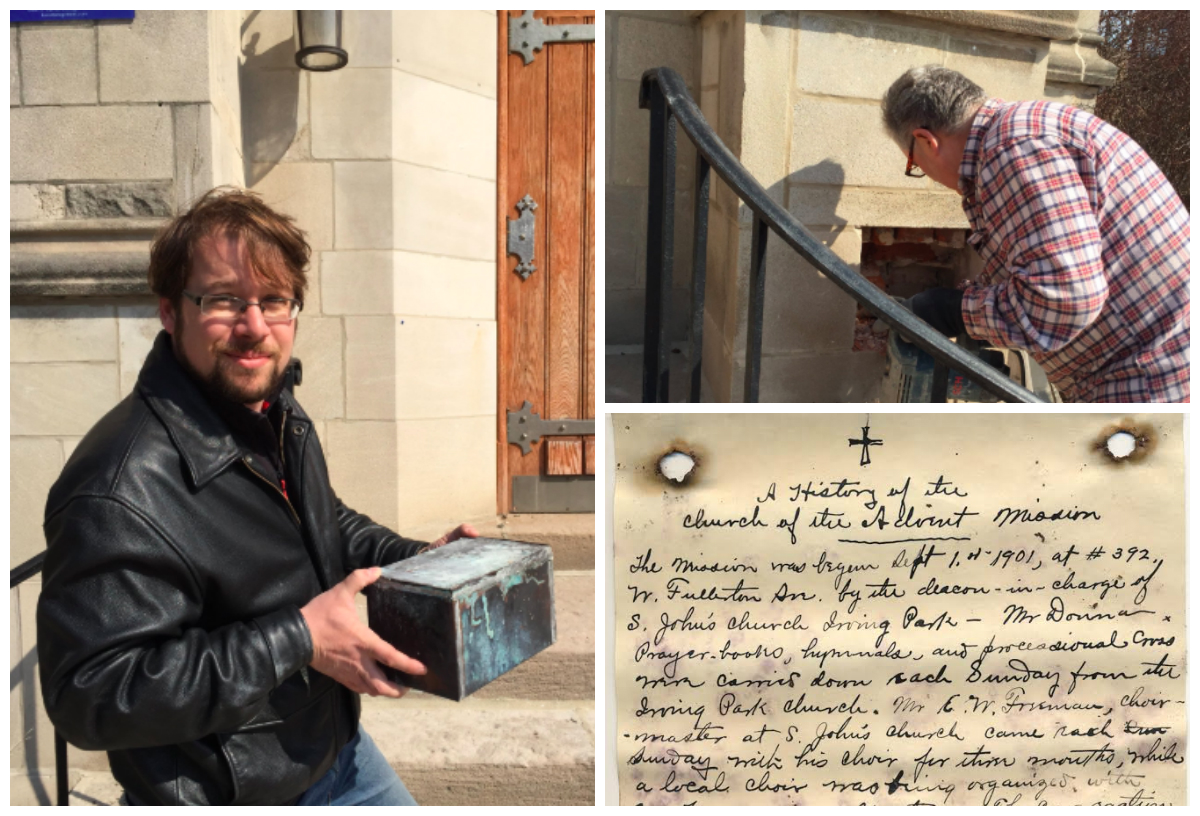 A History of the
Church of the Advent Mission
The Mission was begun Sept 1.st 1901, at # 392.
W. Fullerton Av. by the deacon-in-charge of
S. John's church Irving Park - Mr Donna
Prayer-books, hymnals, and processional Cross
were carried down each Sunday from the
Irving Park church. Mr E. W. Freeman, choir-
-master at S. John's church came each
Sunday with his choir for three months, while
a local choir was being organized, with